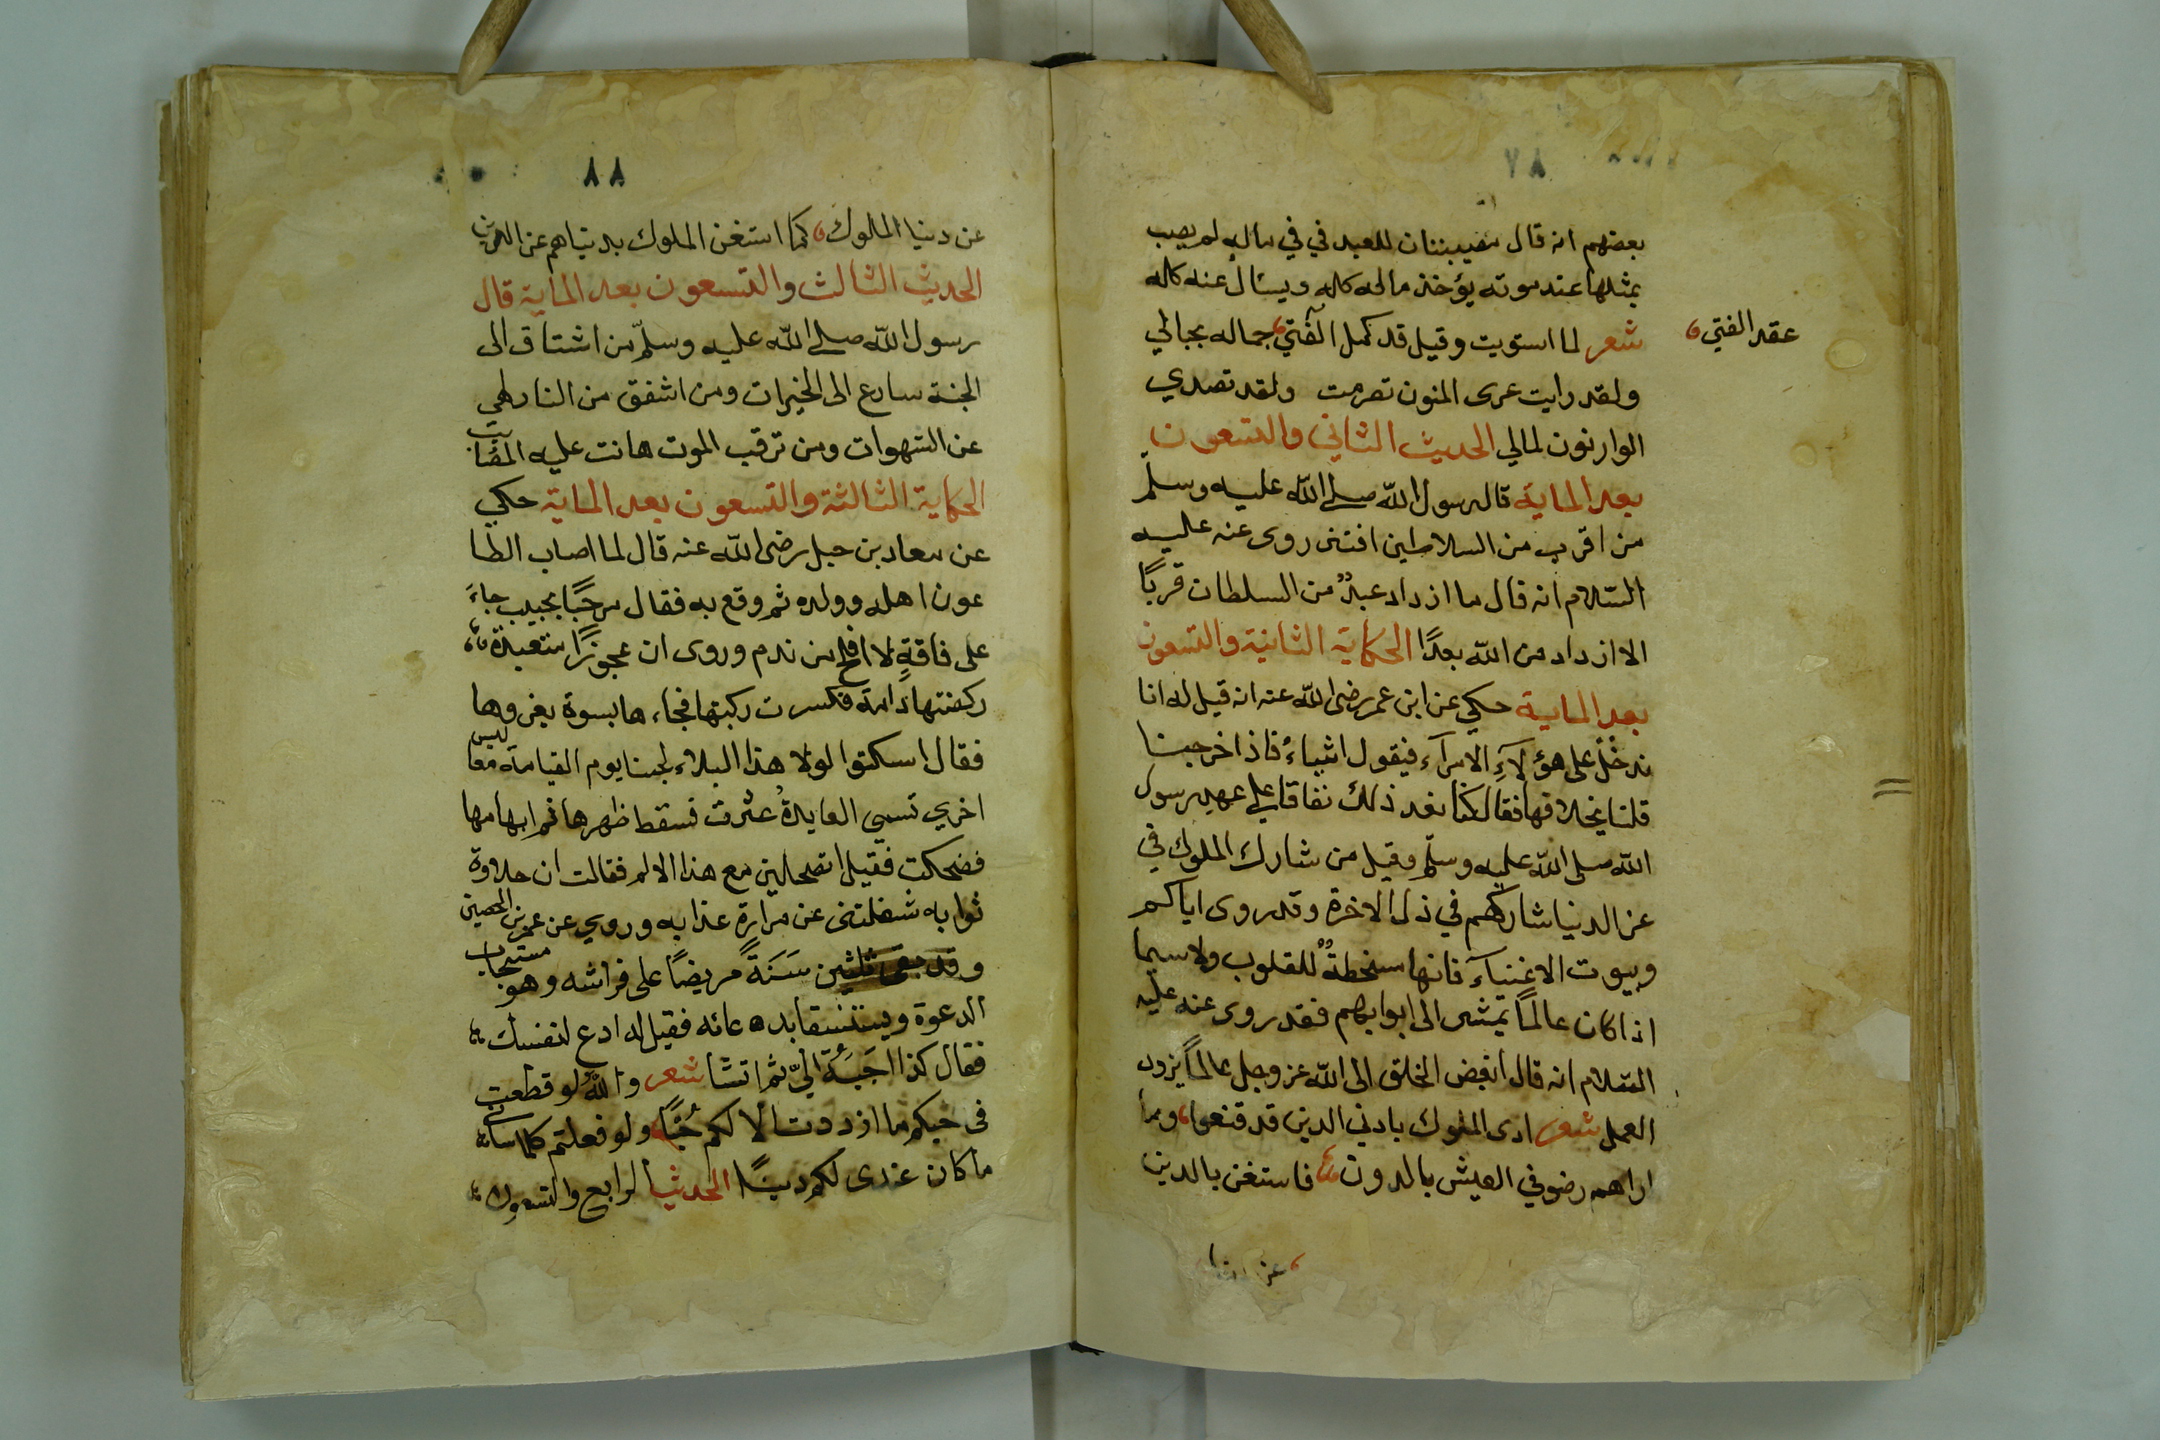 ٨٧
بعضهم انه قال مصيبتان للعبد في في ماله لم يصب
بمثلها عند موته يؤخذ ماله كله ويسئال عنه كله
شعر لما استويت وقيل قد كمل الفتي جماله بجبالي
عقد الفتي
ولقد رايت عرى المنون تصرمت ولقد تصدي
الوارثون لمالي الحديث الثاني والتسعون
بعد الماية قال رسول الله صلى الله عليه وسلم
من اقرب من السلاطين افتتن روى عنه عليه
السلام انه قال ما ازداد عبدٌ من السلطان قربًا
الا ازداد من الله بعدًا الحكاية الثانية والتسعون
بعد الماية حكي عن ابن عمر رضى الله عنه انه قيل له انا
ندخل على هؤلآءِ الامرآء فيقول اشياءُ فاذا خرجنا
قلنا بخلافها فقال كنا نعد ذلك نفاقا على عهد رسول
الله صلى الله عليه وسلم وقيل من شارك الملوك في
عز الدنيا شاركهم في ذل الاخرة وقد روى اياكم
وبيوت الاغنيآء فانها سخطةٌ للقلوب ولا سيما
اذا كان عالمًا يمشى الى ابوابهم فقد روى عنه عليه
السلام انه قال ابغض الخلق الى الله عز وجل عالمًا يزور
العمل شعر ارى الملوك بادني الدين قد قنعوا وما
اراهم رضو في العيش بالدون فاستغن بالدين
عن دنيا
٨٨
عن دنيا الملوك كما استغن الملوك بدنياهم عن الدين
الحديث الثالث والتسعون بعد الماية قال
رسول الله صلى الله عليه وسلم من اشتاق الى
الجنة سارع الى الخيرات ومن اشفق من النار لهي
عن الشهوات ومن ترقب الموت هانت عليه المصايب
الحكاية الثالثة والتسعون بعد الماية حكي
عن معاد بن جبل رضى الله عنه قال لما اصاب الطا
عون اهله وولده ثم وقع به فقال مرحبًا بحبيب جاءَ
على فاقةٍ لا افلح من ندم وروى ان عجوزًا متعبدة
ركضتها دابة فكسرت ركبتها فجاءها بسوة يعزوها
فقال اسكتوا لولا هذا البلاء لجينا يوم القيامة مفاليس
اخري تسمي العابدةُ عثرت فسقط ظهرها فم ابهامها
فضحكت فقيل اتضحلين مع هذا الالم فقالت ان حلاوة
ثوابه شغلتنى عن مرارة عذابه وروي عن عمر بن الحصين
وقد بقى ثلثين سَنَةً مريضًا على فراشه وهو مستجاب
الدعوة ويستسقا بدعائه فقيل له ادع لنفسك
فقال كذا اجَبَهُ اليّ ثم اتشا شعر والله لو قطعت
فى حبكم ما ازددت الا لكم حُبًّا ولو فعلتم كلما ساء
ما كان عندى لكم دينًا الحديث الرابع والتسعون